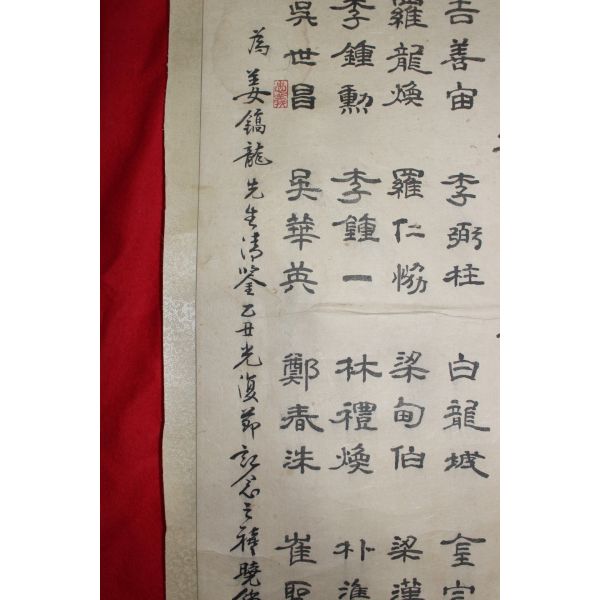 吉善宙 李弼柱 白龍城 金
羅龍煥 羅仁恊 梁甸伯 梁漢
李鍾勳 李鍾一 林禮煥 朴準
吳世昌 吳華英 鄭春洙 崔聖
為 姜鎬龍先生清鑒乙丑光復節記念之 曉